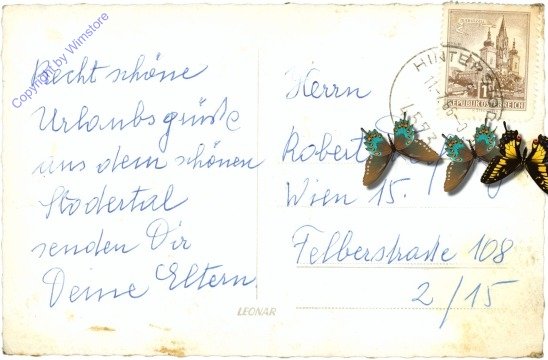 Copyright by Wimstore
Recht schöne
Urlaubsgrüße
aus dem schönen
Stodertal
senden Dir
Deine Eltern.
LEONAR
REPUBLIK ÖSTERREICH
Herrn
Robert
Wien 15.
Felberstraße 108
2/15